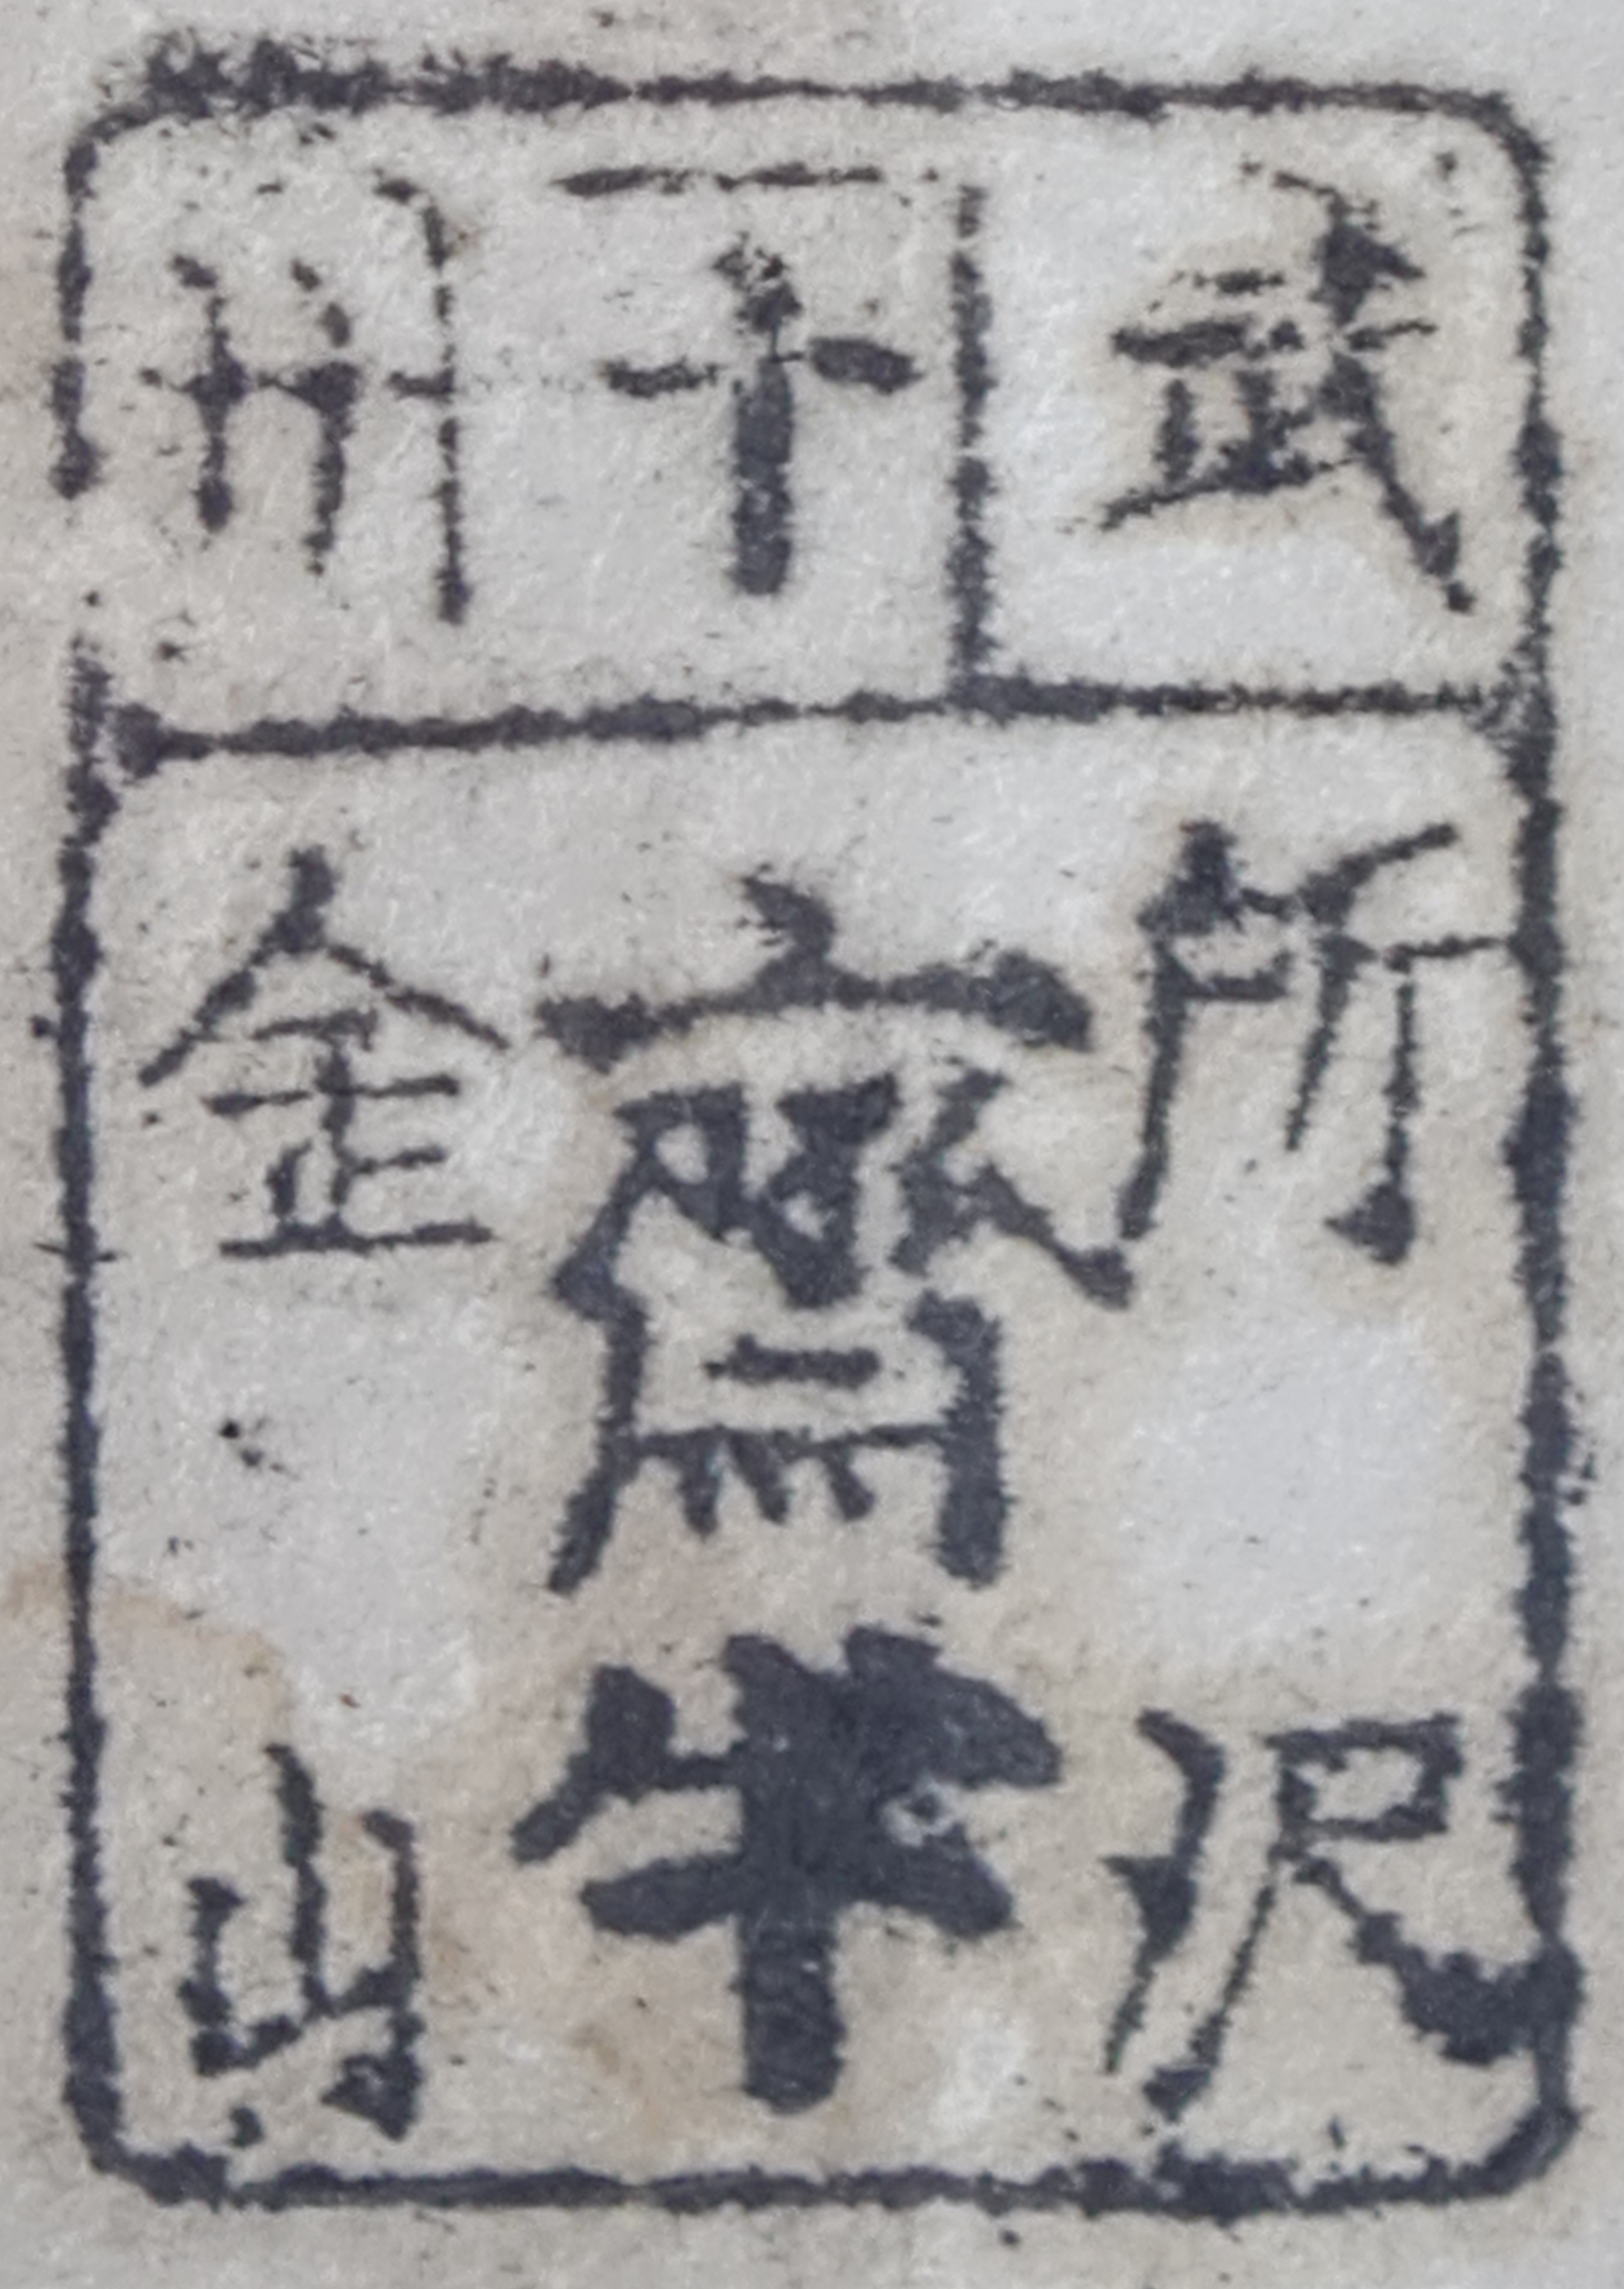 武 一十 州
所沢
齋半
金山